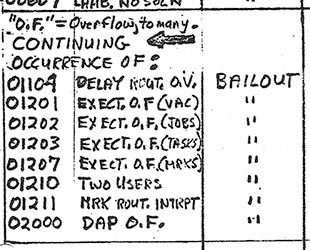 LAMB, NO SOLN
"O.F." = Overflow, too many.
CONTINUING
OCCURRENCE OF:
01104 DELAY ROUT. O.V. BAILOUT
01201 EXECT. O.F. (VAC) "
01202 EXECT. O.F. (JOBS) "
01203 EXECT. O.F. (TASKS) "
01207 EXECT. O.F. (MRKS) "
01210 TWO USERS "
01211 MRK ROUT. INTRPT "
02000 DAP O.F. "